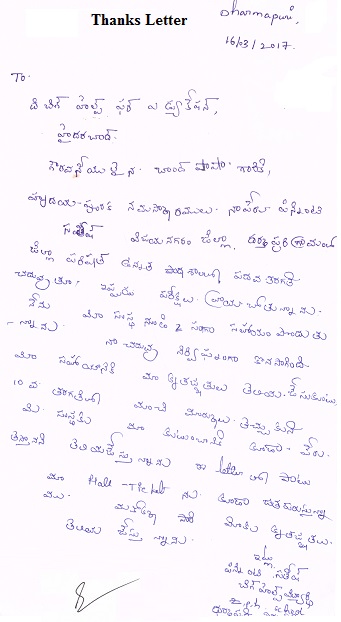 Thanks Letter
Dharmapuri,
16/03/2017.
To.
ది బిగ్ హెల్ప్ ఫర్ ఎ డ్యుకేషన్,
హైదరబాద్.
గౌరవనీయులైన చాంద్ పాషా గారికి,
హృదయ-పూర్వక నమస్కారములు. నాపేరు పినింటి
సతీష్ విజయనగరం జిల్లా ధర్మపురి గ్రామంలో
జిల్లా పరిషత్ ఉన్నత పాఠశాలలో పదవ తరగతి
చదువుతూ ఇప్పుడు పరీక్షలు వ్రాయబోతున్నాను.
నేను మీ సంస్థ నుండి 2 సంలు సహాయం పొందుతు
-న్నాను. నా చదువు నిర్విఘ్నంగా కొనసాగింది
మీ సహాయానికి మా కృతజ్ఞతలు తెలియ చేసుకుంటు
10 వ తరగతిలో మంచి మార్కులు తెచ్చుకుని
మీ సంస్థకు మా కుటుంబానికి కూడా పేరు
తెస్తానని తెలియచేస్తున్నాను ఈ letter తో పాటు
మా Hall-Ticket ను కూడా జతపరుస్తున్నా
ము. మరొక్క సారి మీకు కృతజ్ఞతలు
తెలియ చేస్తున్నాను.
ఇట్లు
పినింటి సతీష్
బిగ్ హెల్ప్ విద్యార్థి